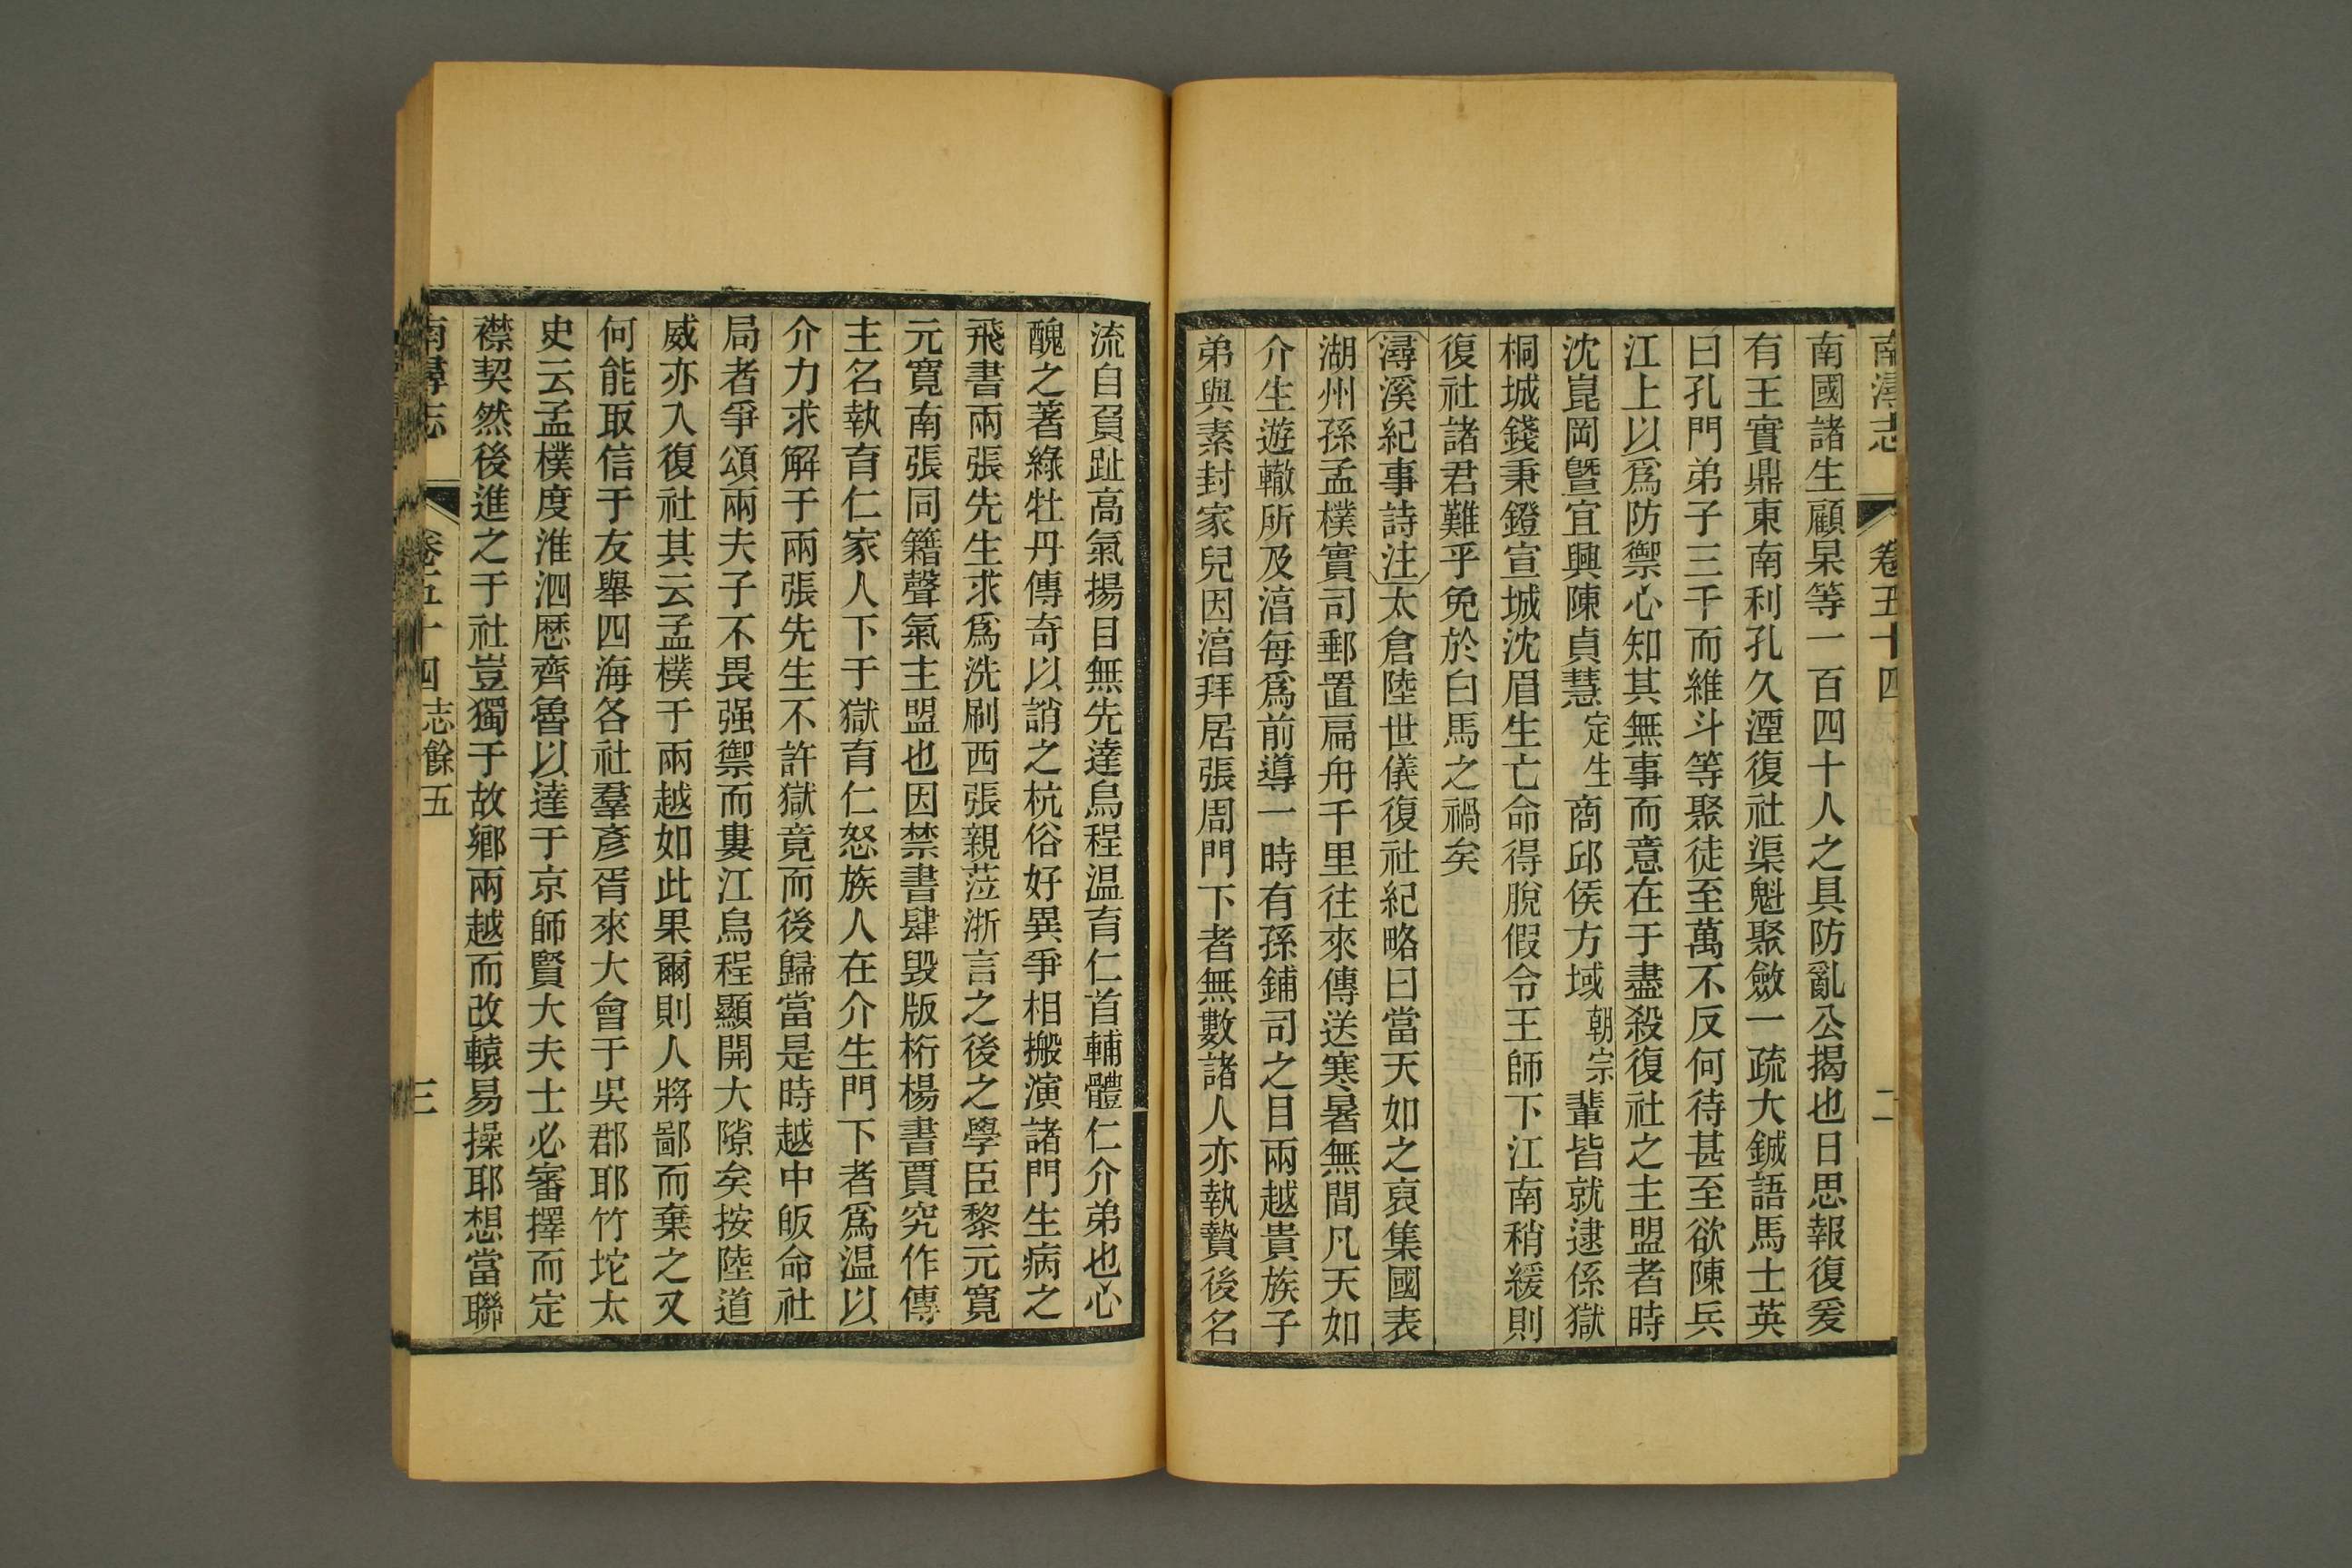 南潯志 卷五十四 二
南國諸生顧杲等一百四十人之具防亂公揭也日思報復爰
有王實鼎東南利孔久湮復社渠魁聚斂一疏大鋮語馬士英
曰孔門弟子三千而維斗等聚徒至萬不反何待甚至欲陳兵
江上以爲防禦心知其無事而意在于盡殺復社之主盟者時
沈崑岡曁宜興陳貞慧定生商邱侯方域朝宗輩皆就逮係獄
桐城錢秉鐙宣城沈眉生亡命得脫假令王師下江南稍緩則
復社諸君難乎免於白馬之禍矣
潯溪紀事詩注太倉陸世儀復社紀略曰當天如之裒集國表
湖州孫孟樸實司郵置扁舟千里往來傳送寒暑無間凡天如
介生遊轍所及湻每爲前導一時有孫鋪司之目兩越貴族子
弟與素封家兒因湻拜居張周門下者無數諸人亦執贄後名
流自負趾高氣揚目無先達烏程温育仁首輔體仁介弟也心
醜之著綠牡丹傳奇以誚之杭俗好異爭相搬演諸門生病之
飛書兩張先生求爲洗刷西張親蒞浙言之後之學臣黎元寬
元寬南張同籍聲氣主盟也因禁書肆毀版桁楊書賈究作傳
主名執育仁家人下于獄育仁怒族人在介生門下者爲温以
介力求解于兩張先生不許獄竟而後歸當是時越中皈命社
局者爭頌兩夫子不畏强禦而婁江烏程顯開大隙矣按陸道
威亦入復社其云孟樸于兩越如此果爾則人將鄙而棄之又
何能取信于友舉四海各社羣彥胥來大會于吳郡耶竹坨太
史云孟樸度淮泗歷齊魯以達于京師賢大夫士必審擇而定
襟契然後進之于社豈獨于故鄉兩越而改轅易操耶想當聯
南潯志 卷五十四 志餘五 三